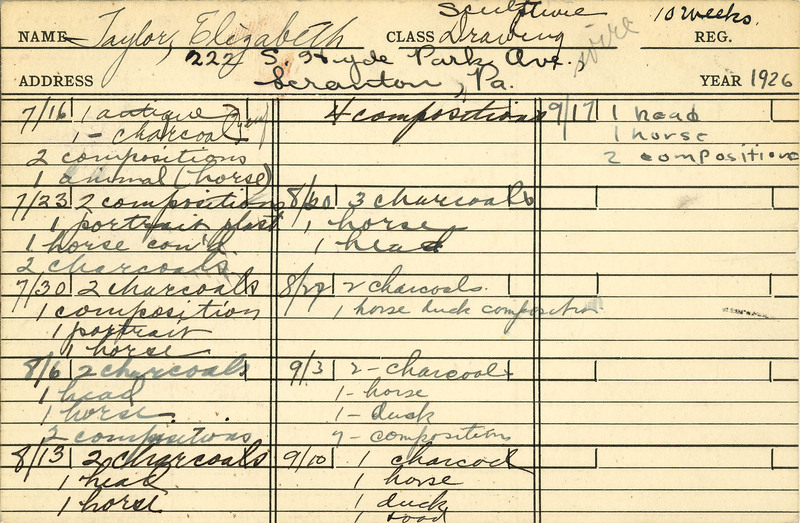 Sculpture
NAME Taylor, Elizabeth CLASS Drawing wire 10 weeks. REG.
222 S. Hyde Park Ave.,
ADDRESS Scranton, Pa. YEAR 1926
7/16 1 antique
1 - charcoal
2 compositions
1 animal (horse)
7/23 2 compositions
1 portrait plast
1 horse con'd
2 charcoals
7/30 2 charcoals
1 composition
1 portrait
1 horse
8/6 2 charcoals
1 head
1 horse.
2 compositions
8/13 2 charcoals
1 head
1 horse
4 compositions
8/20 3 charcoals
1 horse
1 head
8/27 2 charcoals.
1 horse duck composition
9/3 2 - charcoals
1 - horse
1 - duck
7 - compositions
9/10 1 charcoal
1 horse
1 duck
9/17 1 head
1 horse
2 compositions